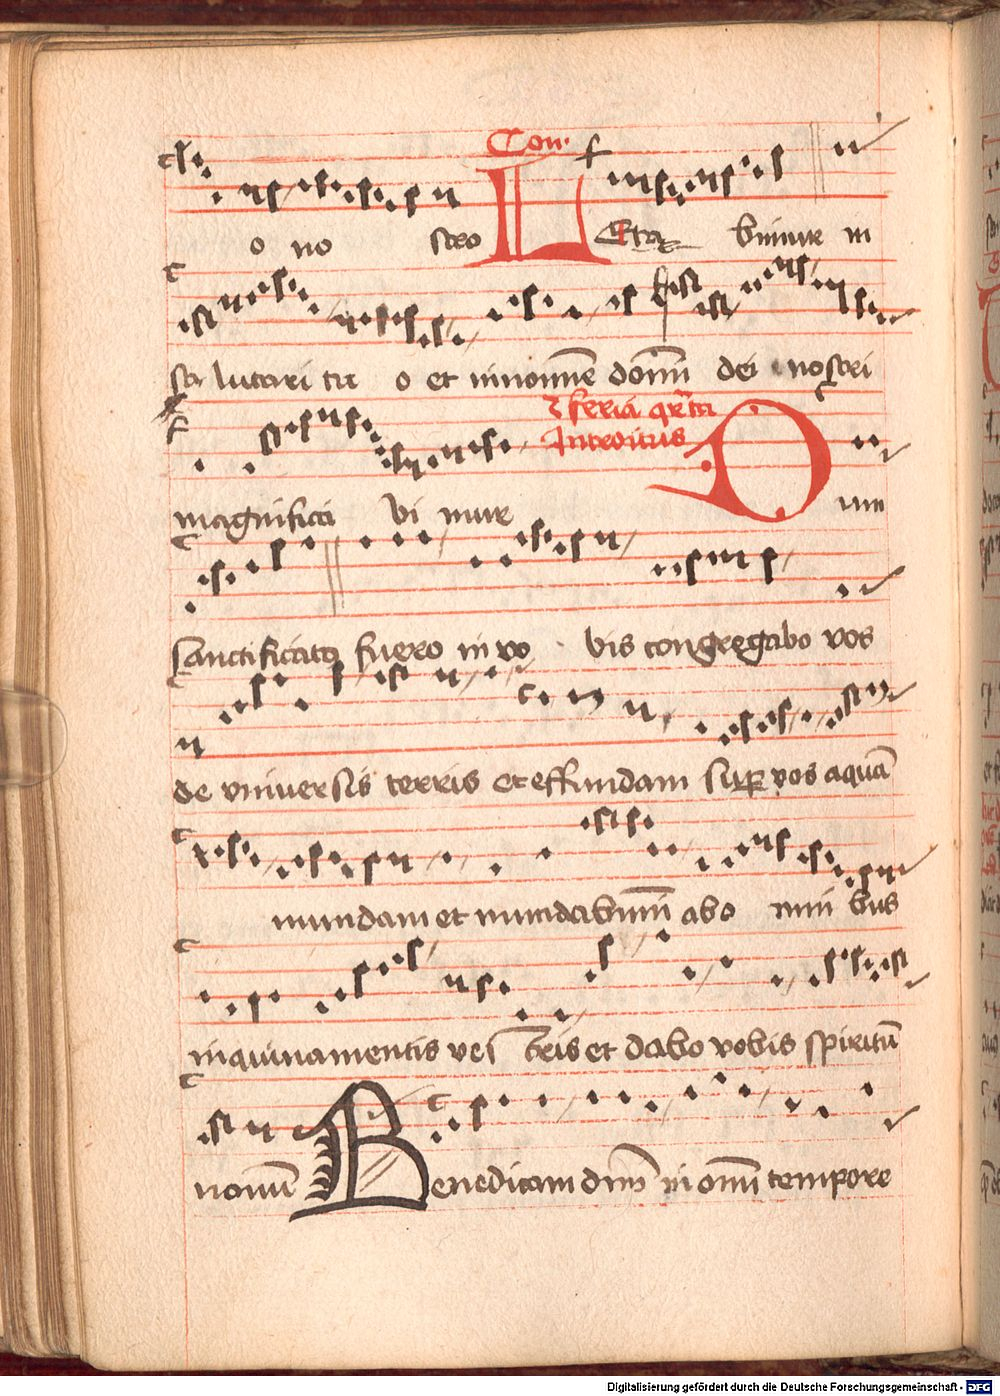 Com
o no stro LEta bimur in
sa lutari tu o et in nomīe domīī dei nostri
feria qrta
Introitus
magnifica bi mur Dum
sanctificatus fuero in vo bis congregabo vos
de vniversis terris et effundam sup vos aquā
mundam et mundabimīī abo mni bus
inquinamentis ves tris et dabo vobis spiritū
nouū Benedicam dnm in omī tempore
Digitalisierung gefördert durch die Deutsche Forschungsgemeinschaft - DFG